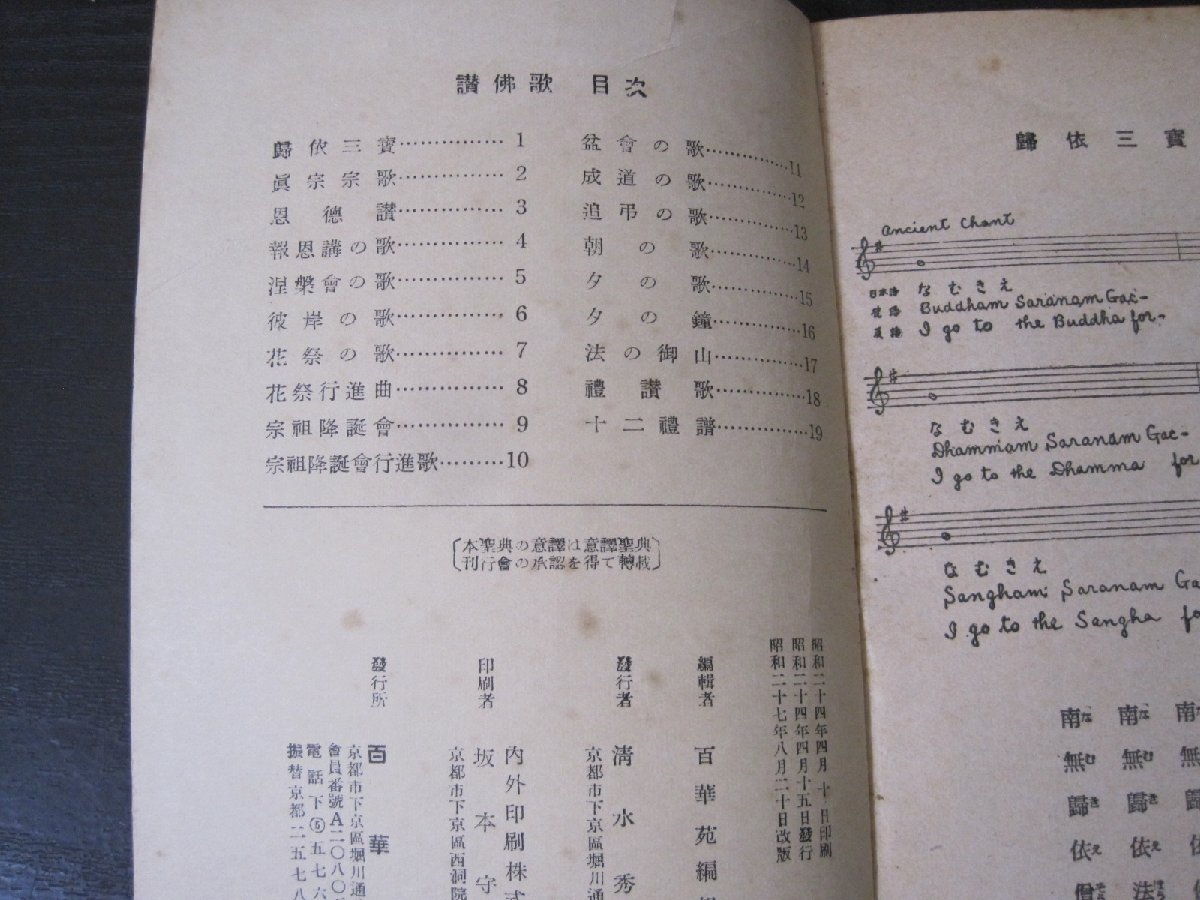 讃佛歌 目次
歸依三寳……………1
眞宗宗歌……………2
恩德讃……………3
報恩講の歌……………4
涅槃會の歌……………5
彼岸の歌……………6
花祭の歌……………7
花祭行進曲……………8
宗祖降誕會……………9
宗祖降誕會行進歌………10
盆會の歌……………11
成道の歌……………12
追弔の歌……………13
朝の歌……………14
夕の歌……………15
夕の鐘……………16
法の御山……………17
禮讃歌……………18
十二禮讃……………19
本聖典の意譯は意譯聖典
刊行會の承認を得て轉載
昭和二十四年四月十日印刷
昭和二十四年四月十五日發行
昭和二十七年八月二十日改版
編輯者 百華苑編
發行者 淸水秀
京都市下京區堀川通
印刷者 內外印刷株式
坂本守
京都市下京區西洞院
發行所 百華
京都市下京區堀川通
會員番號A二〇八〇
電話下⑤五七六
振替京都二五七八
歸依三寳
Ancient Chant
日本語 なむきえ
巴語 Buddham Saranam Gac-
英語 I go to the Buddha for-
なむきえ
Dhammam Saranam Gac-
I go to the Dhamma for
なむきえ
Sangham Saranam Ga
I go to the Sangha fo
南無歸依
南無歸依法
南無歸依僧